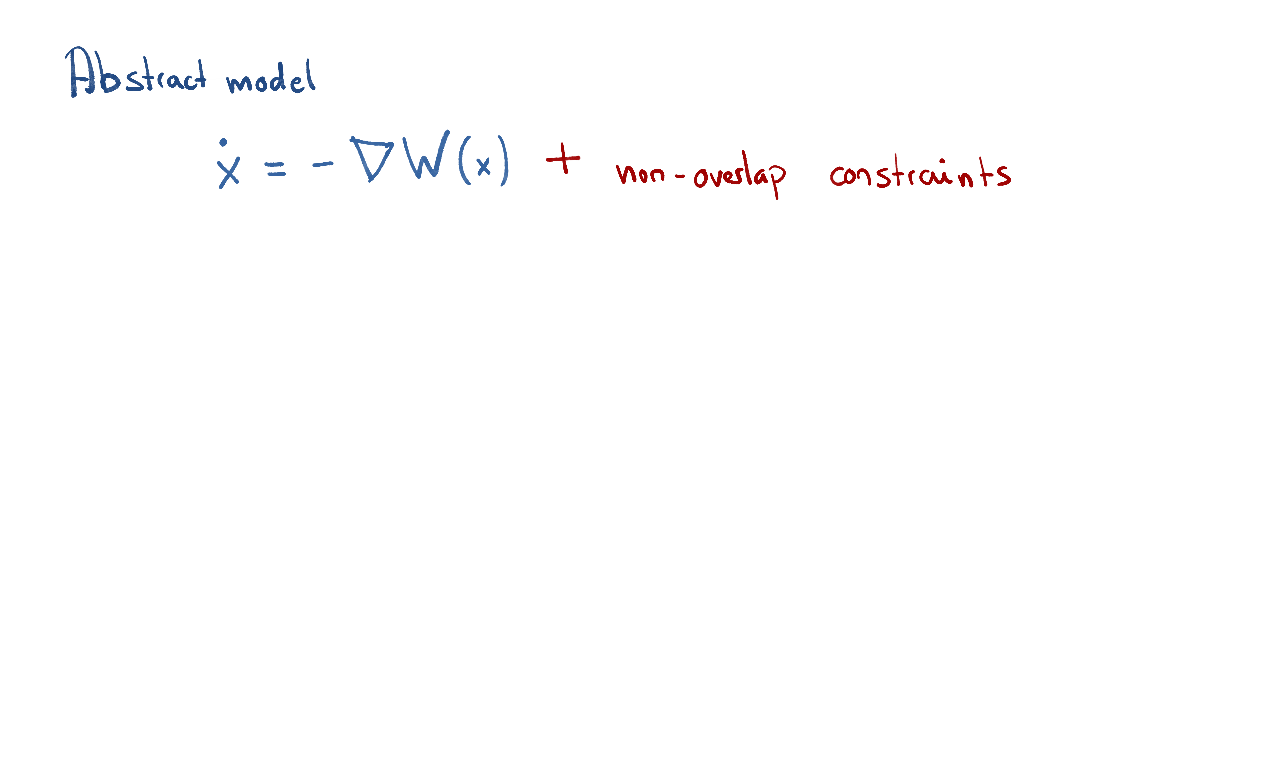 Abstract model
ẋ = - ∇W(x) + non-overlap constraints